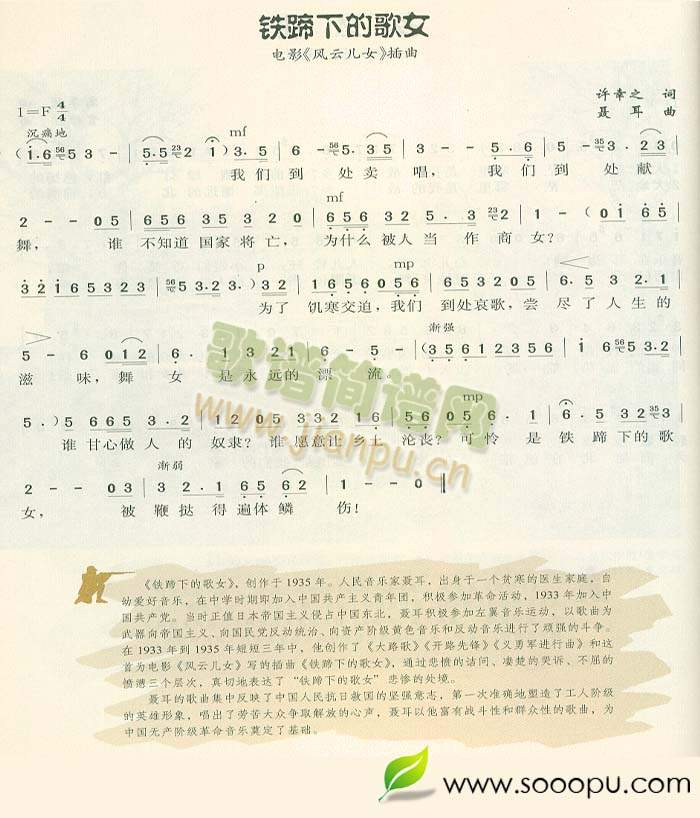 铁蹄下的歌女
电影《风云儿女》插曲
1=F 4/4
许幸之 词
聂耳 曲
沉痛地
mf
我们到处卖唱，我们到处献
mf
舞，谁不知道国家将亡，为什么被人当作商女？
p mp
为了饥寒交迫，我们到处哀歌，尝尽了人生的
渐强
滋味，舞女是永远的漂流。
mp
谁甘心做人的奴隶？谁愿意让乡土沦丧？可怜是铁蹄下的歌
渐弱
女，被鞭挞得遍体鳞伤！
歌谱简谱网
www.jianpu.cn
《铁蹄下的歌女》，创作于1935年。人民音乐家聂耳，出身于一个贫寒的医生家庭，自
动爱好音乐，在中学时期即加入中国共产主义青年团，积极参加革命活动，1933年加入中
国共产党。当时正值日本帝国主义侵占中国东北，聂耳积极参加左翼音乐运动，以歌曲为
武器向帝国主义、向国民党反动统治、向资产阶级黄色音乐和反动音乐进行了顽强的斗争。
在1933年到1935年短短三年中，他创作了《大路歌》《开路先锋》《义勇军进行曲》和这
首为电影《风云儿女》写的插曲《铁蹄下的歌女》，通过悲愤的诘问、凄楚的哭诉、不屈的
愤懑三个层次，真切地表达了“铁蹄下的歌女”悲惨的处境。
聂耳的歌曲集中反映了中国人民抗日救国的坚强意志，第一次准确地塑造了工人阶级
的英雄形象，唱出了劳苦大众争取解放的心声，聂耳以他富有战斗性和群众性的歌曲，为
中国无产阶级革命音乐奠定了基础。
www.sooopu.com